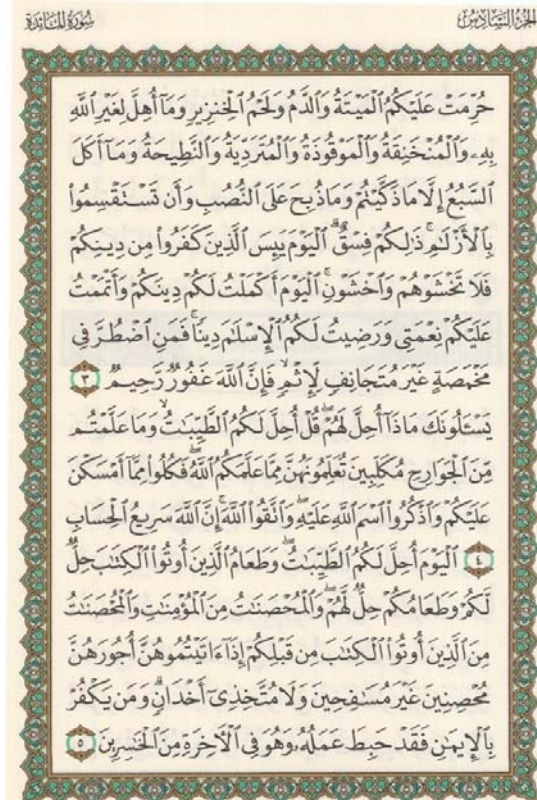 الجزء السادس
سورة المائدة
حُرِّمَتْ عَلَيْكُمُ ٱلْمَيْتَةُ وَٱلدَّمُ وَلَحْمُ ٱلْخِنزِيرِ وَمَآ أُهِلَّ لِغَيْرِ ٱللَّهِ
بِهِۦ وَٱلْمُنْخَنِقَةُ وَٱلْمَوْقُوذَةُ وَٱلْمُتَرَدِّيَةُ وَٱلنَّطِيحَةُ وَمَآ أَكَلَ
ٱلسَّبُعُ إِلَّا مَا ذَكَّيْتُمْ وَمَا ذُبِحَ عَلَى ٱلنُّصُبِ وَأَن تَسْتَقْسِمُوا۟
بِٱلْأَزْلَٰمِ ۚ ذَٰلِكُمْ فِسْقٌ ۗ ٱلْيَوْمَ يَئِسَ ٱلَّذِينَ كَفَرُوا۟ مِن دِينِكُمْ
فَلَا تَخْشَوْهُمْ وَٱخْشَوْنِ ۚ ٱلْيَوْمَ أَكْمَلْتُ لَكُمْ دِينَكُمْ وَأَتْمَمْتُ
عَلَيْكُمْ نِعْمَتِى وَرَضِيتُ لَكُمُ ٱلْإِسْلَٰمَ دِينًا ۚ فَمَنِ ٱضْطُرَّ فِى
مَخْمَصَةٍ غَيْرَ مُتَجَانِفٍ لِّإِثْمٍ ۙ فَإِنَّ ٱللَّهَ غَفُورٌ رَّحِيمٌ ٣
يَسْـَٔلُونَكَ مَاذَآ أُحِلَّ لَهُمْ ۖ قُلْ أُحِلَّ لَكُمُ ٱلطَّيِّبَٰتُ ۙ وَمَا عَلَّمْتُم
مِّنَ ٱلْجَوَارِحِ مُكَلِّبِينَ تُعَلِّمُونَهُنَّ مِمَّا عَلَّمَكُمُ ٱللَّهُ ۖ فَكُلُوا۟ مِمَّآ أَمْسَكْنَ
عَلَيْكُمْ وَٱذْكُرُوا۟ ٱسْمَ ٱللَّهِ عَلَيْهِ ۖ وَٱتَّقُوا۟ ٱللَّهَ ۚ إِنَّ ٱللَّهَ سَرِيعُ ٱلْحِسَابِ
٤ ٱلْيَوْمَ أُحِلَّ لَكُمُ ٱلطَّيِّبَٰتُ ۖ وَطَعَامُ ٱلَّذِينَ أُوتُوا۟ ٱلْكِتَٰبَ حِلٌّ
لَّكُمْ وَطَعَامُكُمْ حِلٌّ لَّهُمْ ۖ وَٱلْمُحْصَنَٰتُ مِنَ ٱلْمُؤْمِنَٰتِ وَٱلْمُحْصَنَٰتُ
مِنَ ٱلَّذِينَ أُوتُوا۟ ٱلْكِتَٰبَ مِن قَبْلِكُمْ إِذَآ ءَاتَيْتُمُوهُنَّ أُجُورَهُنَّ
مُحْصِنِينَ غَيْرَ مُسَٰفِحِينَ وَلَا مُتَّخِذِىٓ أَخْدَانٍ ۗ وَمَن يَكْفُرْ
بِٱلْإِيمَٰنِ فَقَدْ حَبِطَ عَمَلُهُۥ وَهُوَ فِى ٱلْءَاخِرَةِ مِنَ ٱلْخَٰسِرِينَ ٥